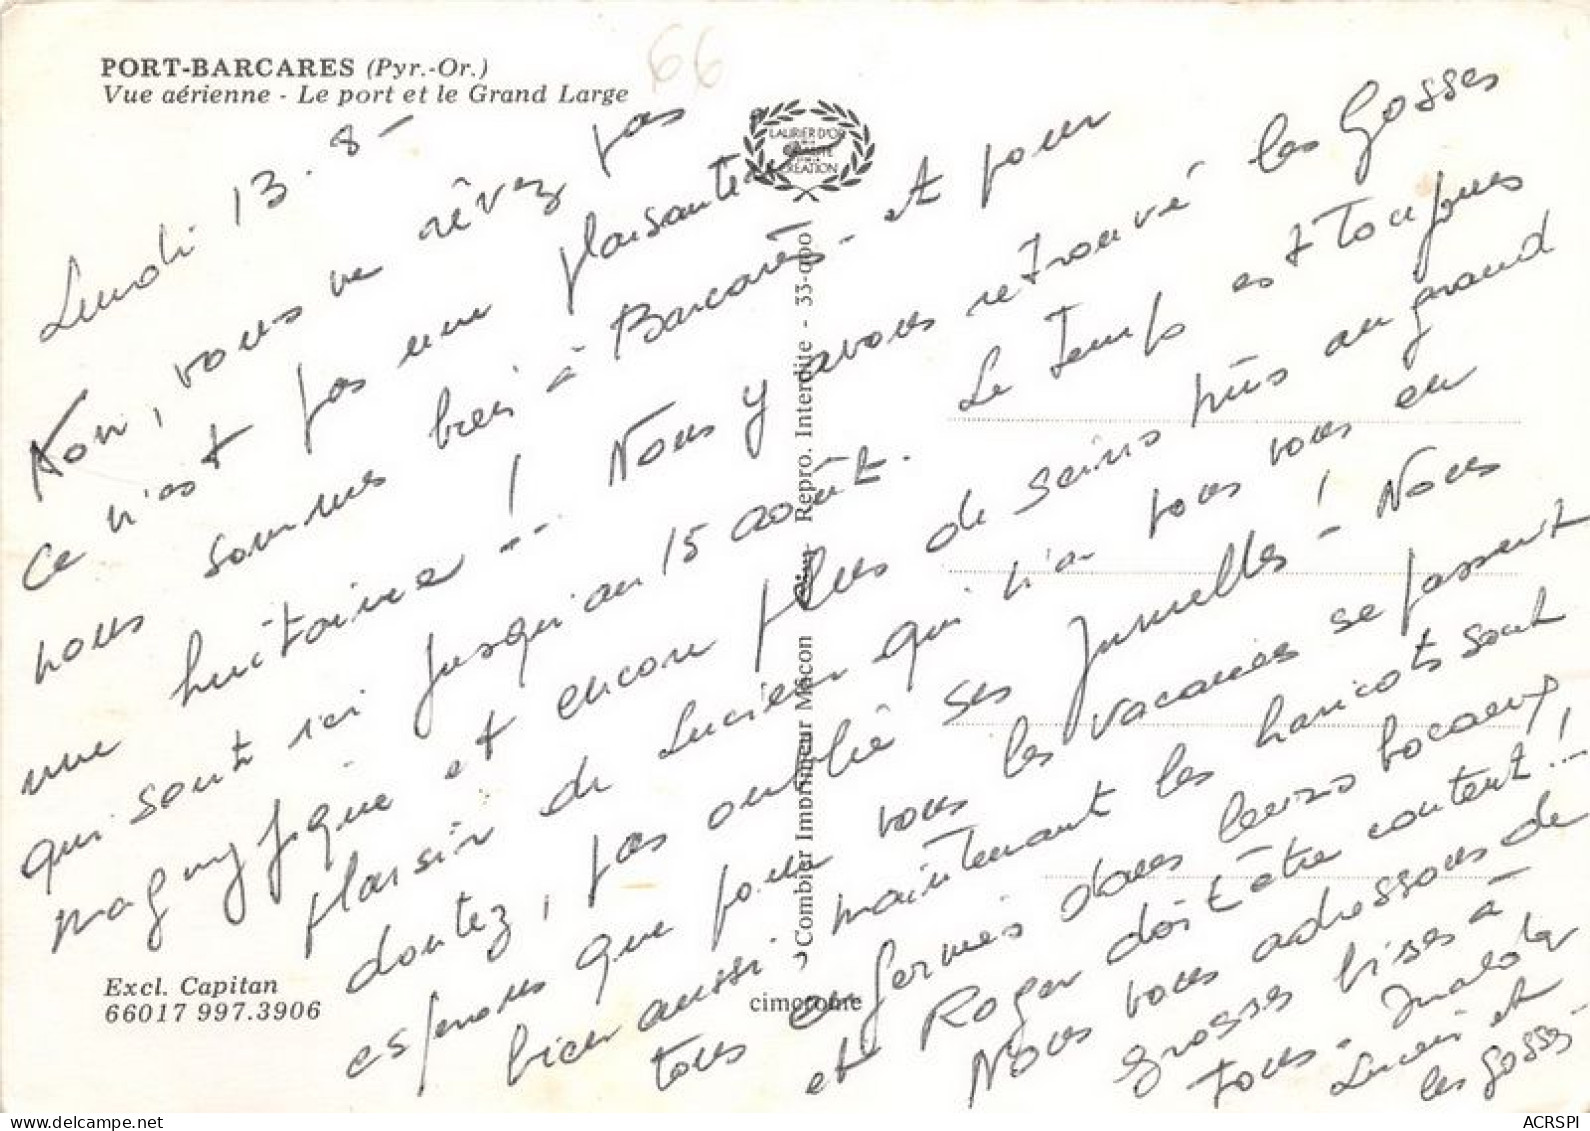 PORT-BARCARES (Pyr.-Or.)
Vue aérienne - Le port et le Grand Large
66
LAURIER D'OR
QUALITÉ
CRÉATION
Lundi 13.8-
Non, vous ne rêvez pas
ce n'est pas une plaisanterie
nous sommes bien à Barcarès - et pour
une huitaine -- ! Nous y avons retrouvé les Gosses
qui sont ici jusqu'au 15 août. Le Temps est toujours
magnifique et encore plus de seins nus au grand
plaisir de Lucien qui n'a vous vous en
doutez, pas oublié ses Jumelles ! - Nous
espérons que pour vous les vacances se passent
bien aussi. maintenant les haricots sont
tous enfermés dans leurs bocaux,
et Roger doit être content !!
Nous vous adressons de
grosses bises à
tous - 
Lucien et
les Gosses.
Combier Imprimeur Mâcon - Repro. Interdite - 33-900
Excl. Capitan
66017 997.3906
cimcrome
ACRSPI